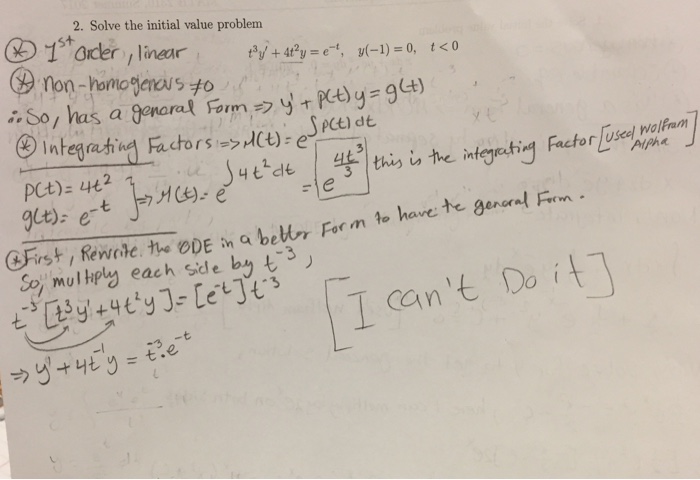 2. Solve the initial value problem
t³y' + 4t²y = e⁻ᵗ, y(−1) = 0, t < 0
⊛ 1ˢᵗ order, linear
⊛ non-homogenous ≠0
∴ So, has a general Form => y' + p(t) y = g(t)
⊛ Integrating Factors => M(t) = e^∫p(t) dt
p(t) = 4t²
g(t) = e⁻ᵗ } => M(t) = e^∫4t² dt = e^(4t³/3) this is the integrating Factor [used Wolfram Alpha]
⊛ First, Rewrite the ODE in a better Form to have the general Form.
So, multiply each side by t⁻³,
t⁻³ [t³y' + 4t²y] = [e⁻ᵗ] t⁻³
[I can't Do it]
=> y' + 4t⁻¹y = t⁻³·e⁻ᵗ